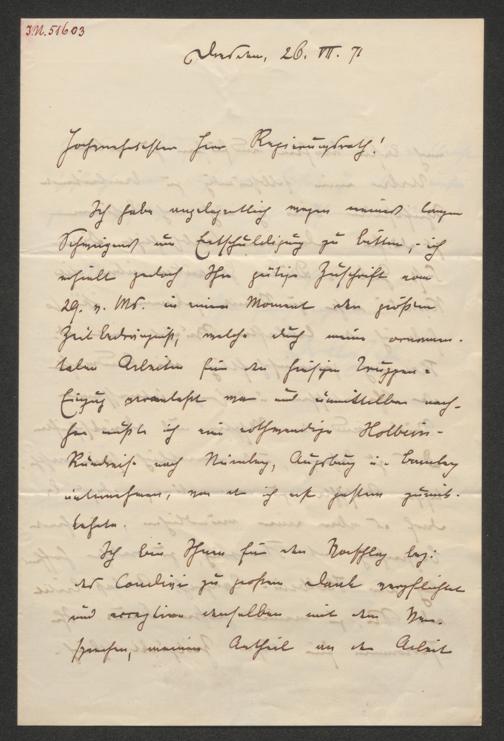 J.N. 51603
Dresden, 26. VII. 71
Hochverehrtester Herr Regierungsrath!
Ich habe angelegentlich wegen meines langen
Schweigens um Entschuldigung zu bitten, – ich
erhielt jedoch Ihre gütige Zuschrift vom
29. v. Mts. in einem Moment der größten
Zeitbedrängniß, welche durch meine ornamen-
talen Arbeiten für den hiesigen Truppen-
Einzug veranlaßt war und unmittelbar nach-
her mußte ich eine nothwendige Holbein-
Rundreise nach Nürnberg, Augsburg u. Bamberg
unternehmen, von der ich erst gestern zurück-
kehrte.
Ich bin Ihnen für den Vorschlag bez:
des Condivi zu großem Dank verpflichtet
und acceptire denselben mit dem Ver-
sprechen, meinen Antheil an der Arbeit